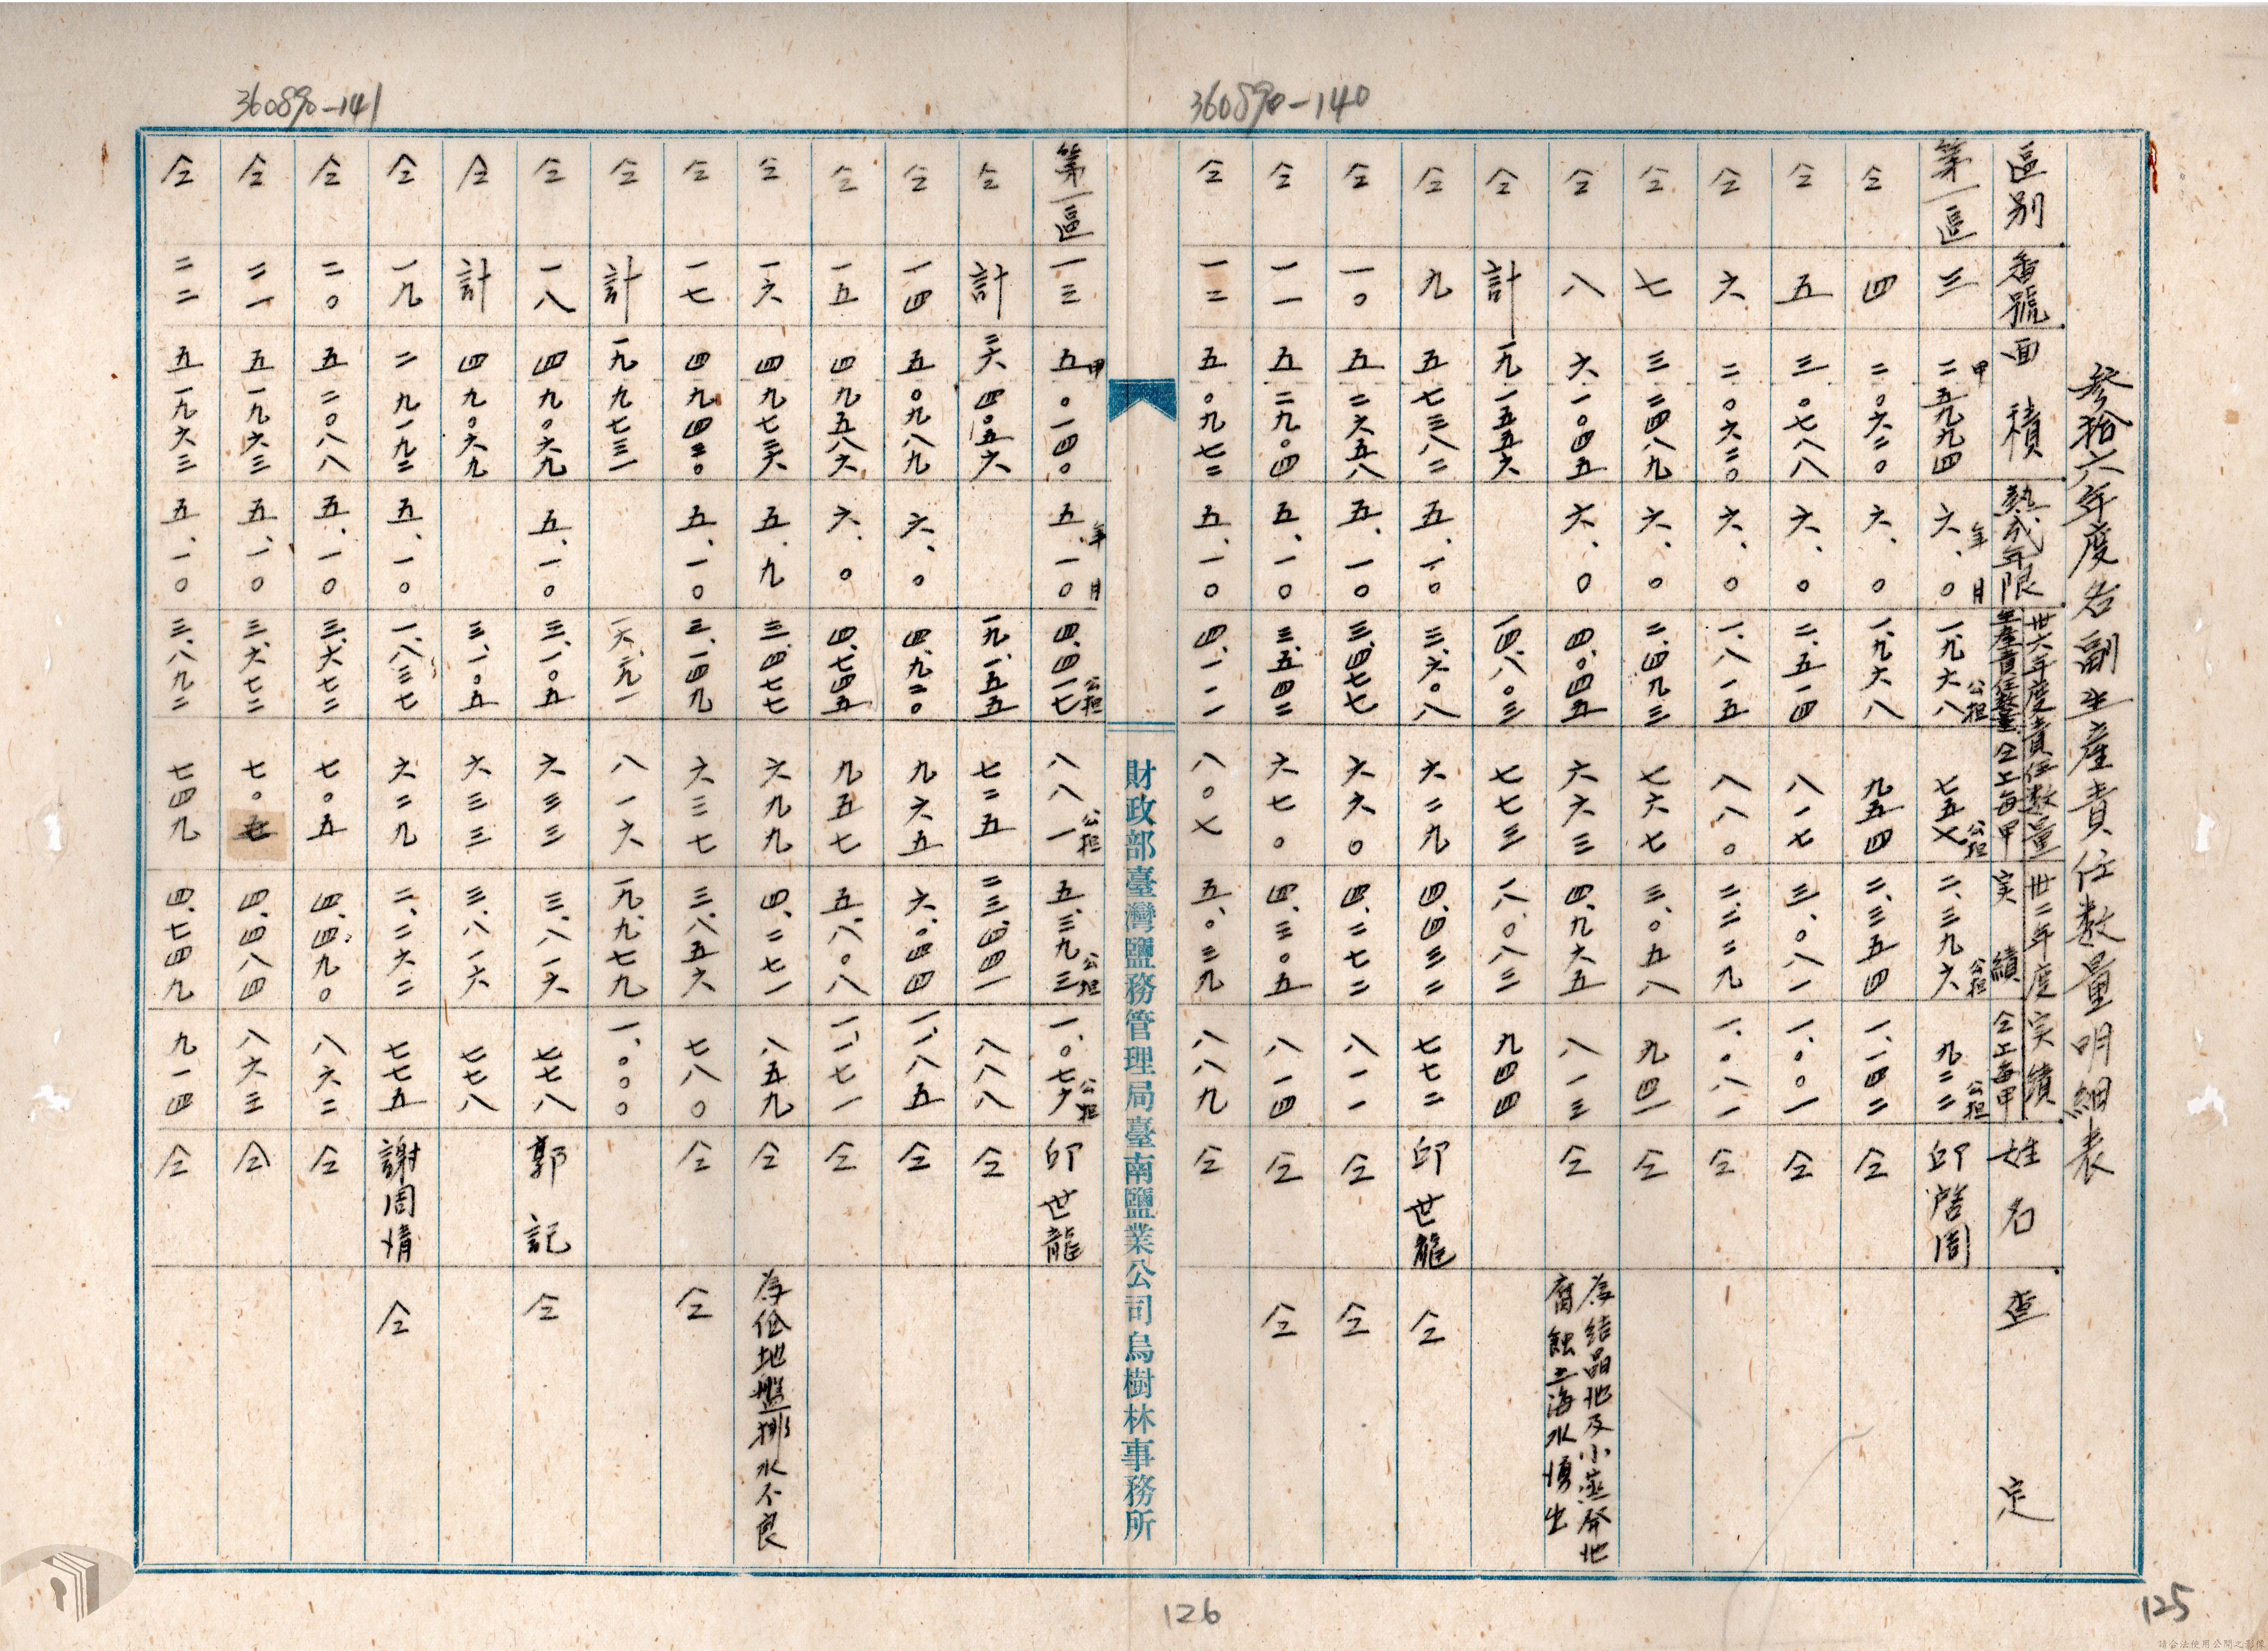 360890-140
360890-141
參拾六年度名副生產責任数量明細表
區別 番號 面積 熟成年限 卅六年度責任数量 生產責任数量 仝上每甲 卅二年度実績 実績 仝上每甲 姓名 查定
第一區 三 甲 二五九九四 年 月 六、〇 公担 一、九六八 公担 七五七 公担 二、三九六 公担 九二二 邱啓周
仝 四 二〇六二〇 六、〇 一、九六八 九五四 二、三五四 一、一四二 仝
仝 五 三〇七八八 六、〇 二、五一四 八一七 三、〇八一 一、〇〇一 仝
仝 六 二〇六二〇 六、〇 一、八一五 八八〇 二、二二九 一、〇八一 仝
仝 七 三二四八九 六、〇 二、四九三 七六七 三、〇五八 九四一 仝
仝 八 六一〇四五 六、〇 四、〇四五 六六三 四、九六五 八一三 仝 為結晶地及小蒸發地
腐蝕工海水湧出
仝 計 一九一五五六 一四、八〇三 七七三 一八、〇八三 九四四
仝 九 五七三八二 五、一〇 三、六〇八 六二九 四、四三二 七七二 邱世龍 仝
仝 一〇 五二六五八 五、一〇 三、四七七 六六〇 四、二七二 八一一 仝 仝
仝 一一 五二九〇四 五、一〇 三、五四二 六七〇 四、三〇五 八一四 仝 仝
仝 一二 五〇九七二 五、一〇 四、一一一 八〇七 五、〇三九 八八九 仝
財政部臺灣鹽務管理局臺南鹽業公司烏樹林事務所
第一區 一三 甲 五〇一四〇 年 月 五、一〇 公担 四、四一七 公担 八八一 公担 五、三九三 公担 一、〇七六 邱世龍
仝 計 二六四〇五六 一九、一五五 七二五 二三、四四一 八八八 仝
仝 一四 五〇九八九 六、〇 四、九二〇 九六五 六、〇四四 一、一八五 仝
仝 一五 四九五八六 六、〇 四、七四五 九五七 五、八〇八 一、一七一 仝
仝 一六 四九七三六 五、九 三、四七七 六九九 四、二七一 八五九 仝 為低地盤排水不良
仝 一七 四九四三〇 五、一〇 三、一四九 六三七 三、八五六 七八〇 仝 仝
仝 計 一九九七三一 一六、二九一 八一六 一九、九七九 一、〇〇〇
仝 一八 四九〇六九 五、一〇 三、一〇五 六三三 三、八一六 七七八 郭記 仝
仝 計 四九〇六九 三、一〇五 六三三 三、八一六 七七八
仝 一九 二九一九二 五、一〇 一、八三七 六二九 二、二六二 七七五 謝周情 仝
仝 二〇 五二〇八八 五、一〇 三、六七二 七〇五 四、四九〇 八六二 仝
仝 二一 五一九六三 五、一〇 三、六七二 七〇七 四、四八四 八六三 仝
仝 二二 五一九六三 五、一〇 三、八九二 七四九 四、七四九 九一四 仝
126
125